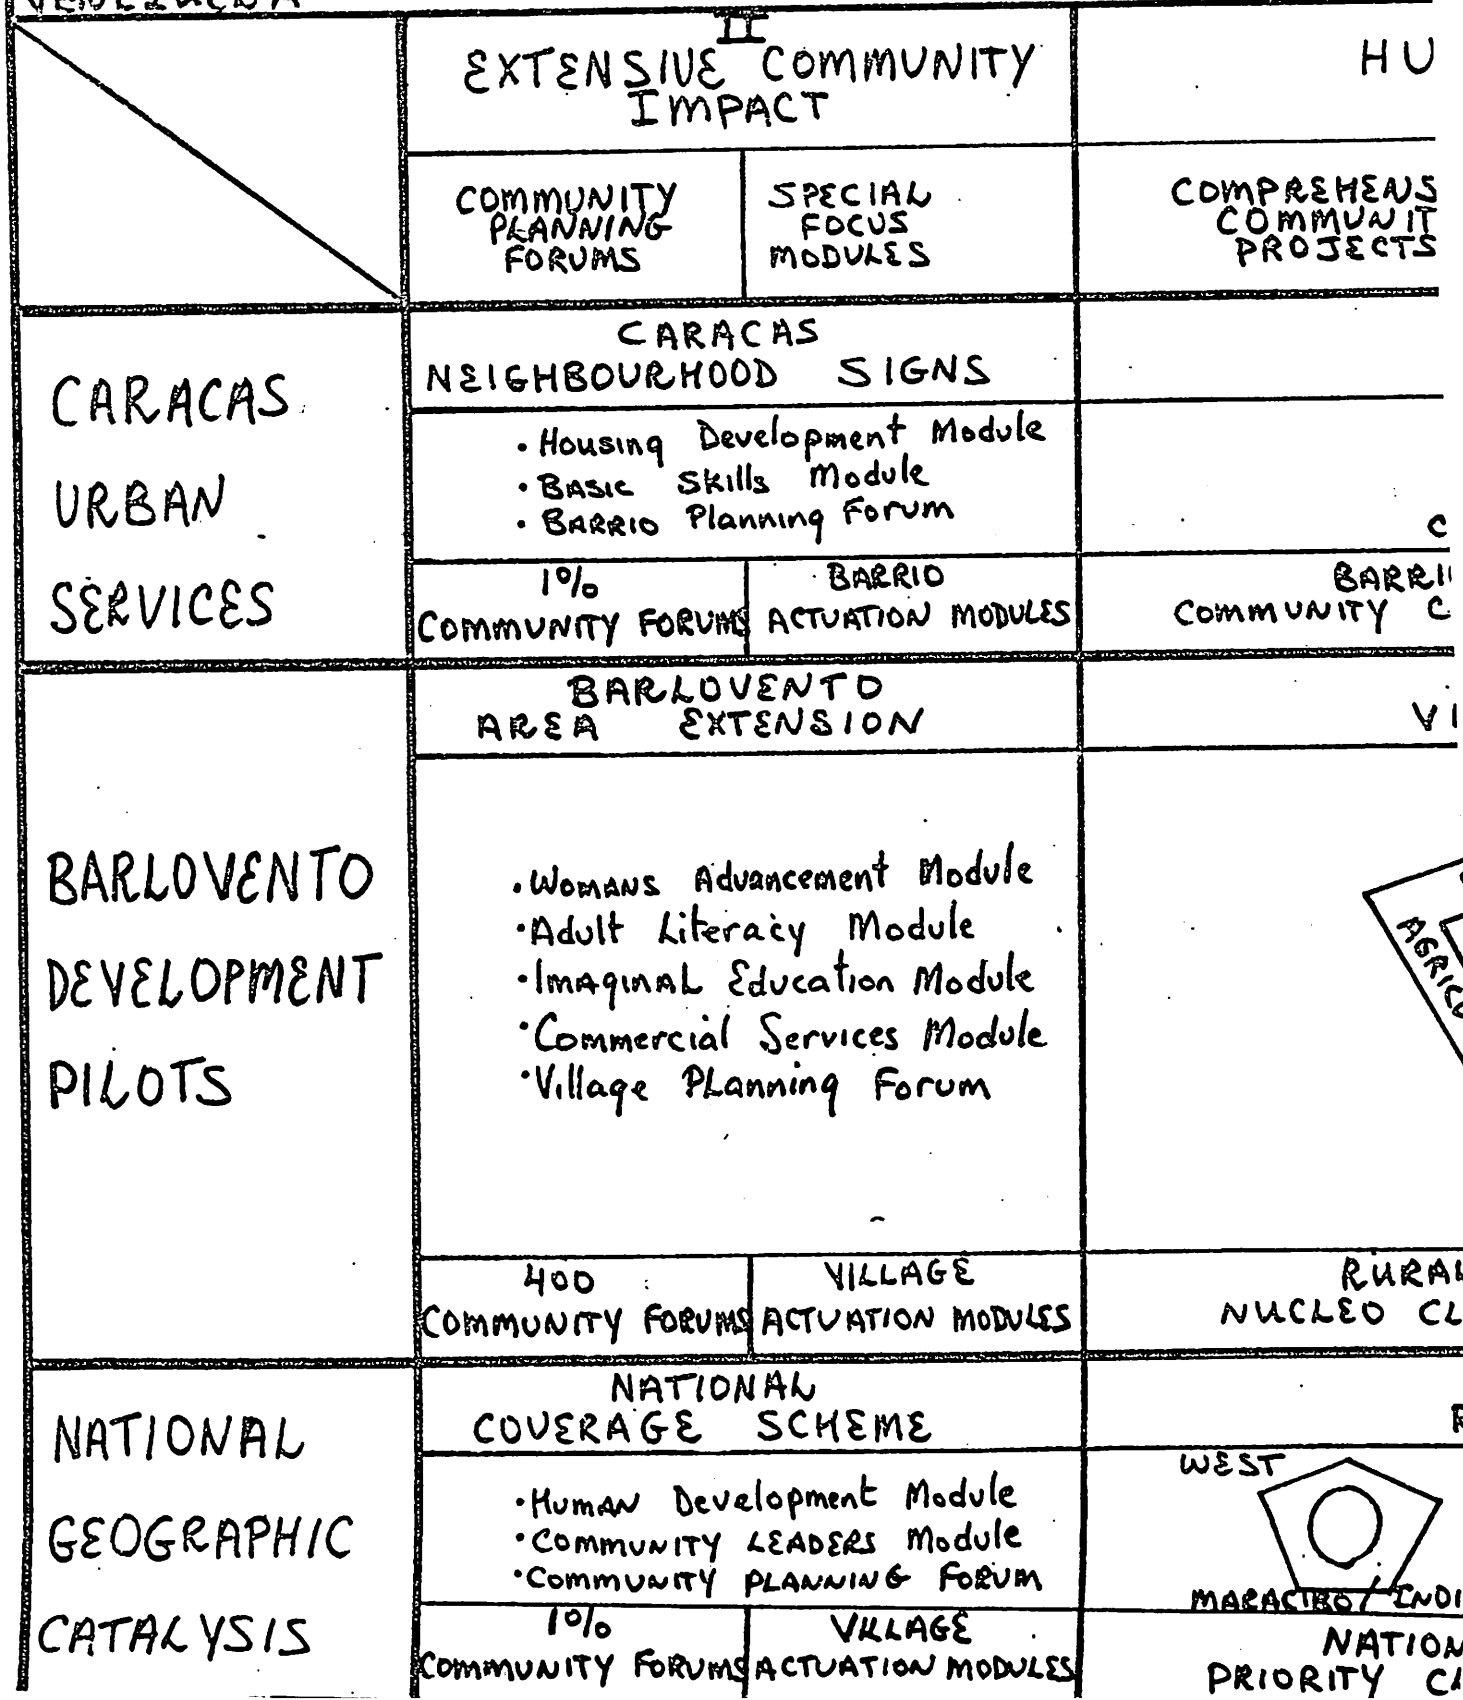 II
EXTENSIVE COMMUNITY
IMPACT
HU
COMMUNITY
PLANNING
FORUMS
SPECIAL
FOCUS
MODULES
COMPREHENS
COMMUNIT
PROJECTS
CARACAS
URBAN
SERVICES
CARACAS
NEIGHBOURHOOD SIGNS
• Housing Development Module
• BASIC Skills Module
• BARRIO Planning Forum
C
1%
COMMUNITY FORUMS
BARRIO
ACTUATION MODULES
BARRI
COMMUNITY C
BARLOVENTO
DEVELOPMENT
PILOTS
BARLOVENTO
AREA EXTENSION
VI
• WOMANS Advancement Module
• Adult Literacy Module
• IMAGINAL Education Module
• Commercial Services Module
• Village PLanning Forum
AGRICU
400
COMMUNITY FORUMS
VILLAGE
ACTUATION MODULES
RURAL
NUCLEO CL
NATIONAL
GEOGRAPHIC
CATALYSIS
NATIONAL
COVERAGE SCHEME
• HUMAN Development Module
• COMMUNITY LEADERS Module
• COMMUNITY PLANNING FORUM
WEST
MARACIBO / INDI
1%
COMMUNITY FORUMS
VILLAGE
ACTUATION MODULES
NATION
PRIORITY